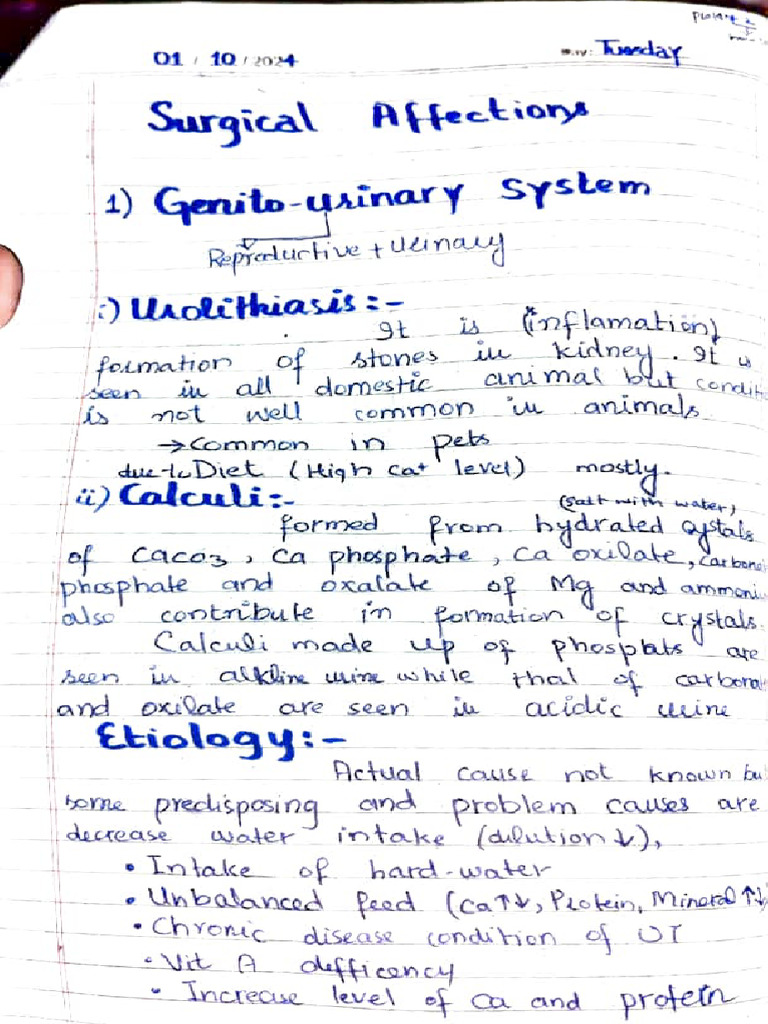 01 / 10 / 2024
Tuesday
Surgical Affections
1) Genito-urinary System
Reproductive + Urinary
i) Urolithiasis:-
It is (inflamation)
formation of stones in kidney. It is
seen in all domestic animal but conditi
is not well common in animals
→ Common in pets
due to Diet (High Ca+ level) mostly.
ii) Calculi:-
(salt with water)
formed from hydrated cystals
of CaCO3, Ca phosphate, Ca oxilate, carbonei
phosphate and oxalate of Mg and ammoni
also contribute in formation of crystals.
Calculi made up of phosphats are
seen in alkline urine while that of carbona
and oxilate are seen in acidic urine
Etiology:-
Actual cause not known bu
some predisposing and problem causes are
decrease water intake (dilution ↓),
• Intake of hard-water
• Unbalanced feed (Ca↑↓, Protein, Mineral ↑↓)
• Chronic disease condition of UT
• Vit A defficency
• Increase level of Ca and protein